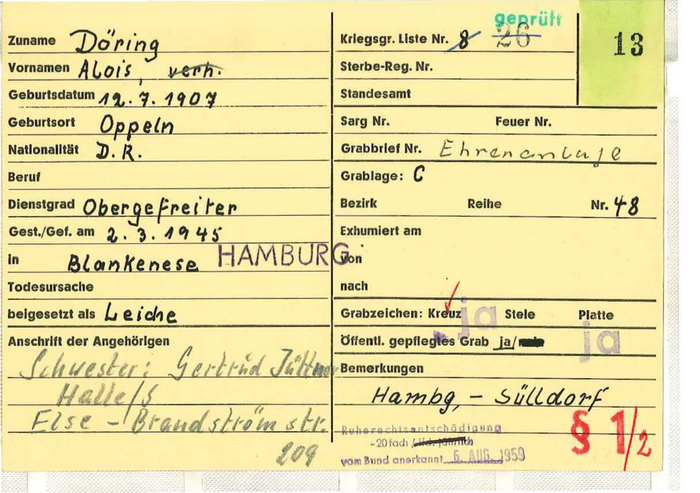 Zuname Döring
Vornamen Alois, verh.
Geburtsdatum 12.7.1907
Geburtsort Oppeln
Nationalität D.R.
Beruf
Dienstgrad Obergefreiter
Gest./Gef. am 2.3.1945
in Blankenese HAMBURG
Todesursache
beigesetzt als Leiche
Anschrift der Angehörigen
Schwester: Gertrud Jüttner
Halle/S
Else-Brandström str.
209
geprüft
Kriegsgr. Liste Nr. 8 26
13
Sterbe-Reg. Nr.
Standesamt
Sarg Nr. Feuer Nr.
Grabbrief Nr. Ehrenanlage
Grablage: C
Bezirk Reihe Nr. 48
Exhumiert am
von
nach
Grabzeichen: Kreuz Stele Platte
ja
Öffentl. gepflegtes Grab ja/
ja
Bemerkungen
Hambg.-Sülldorf
Ruherechtsentschädigung
-20fach / lfd. jährlich
vom Bund anerkannt 6. AUG. 1959
§ 1/2